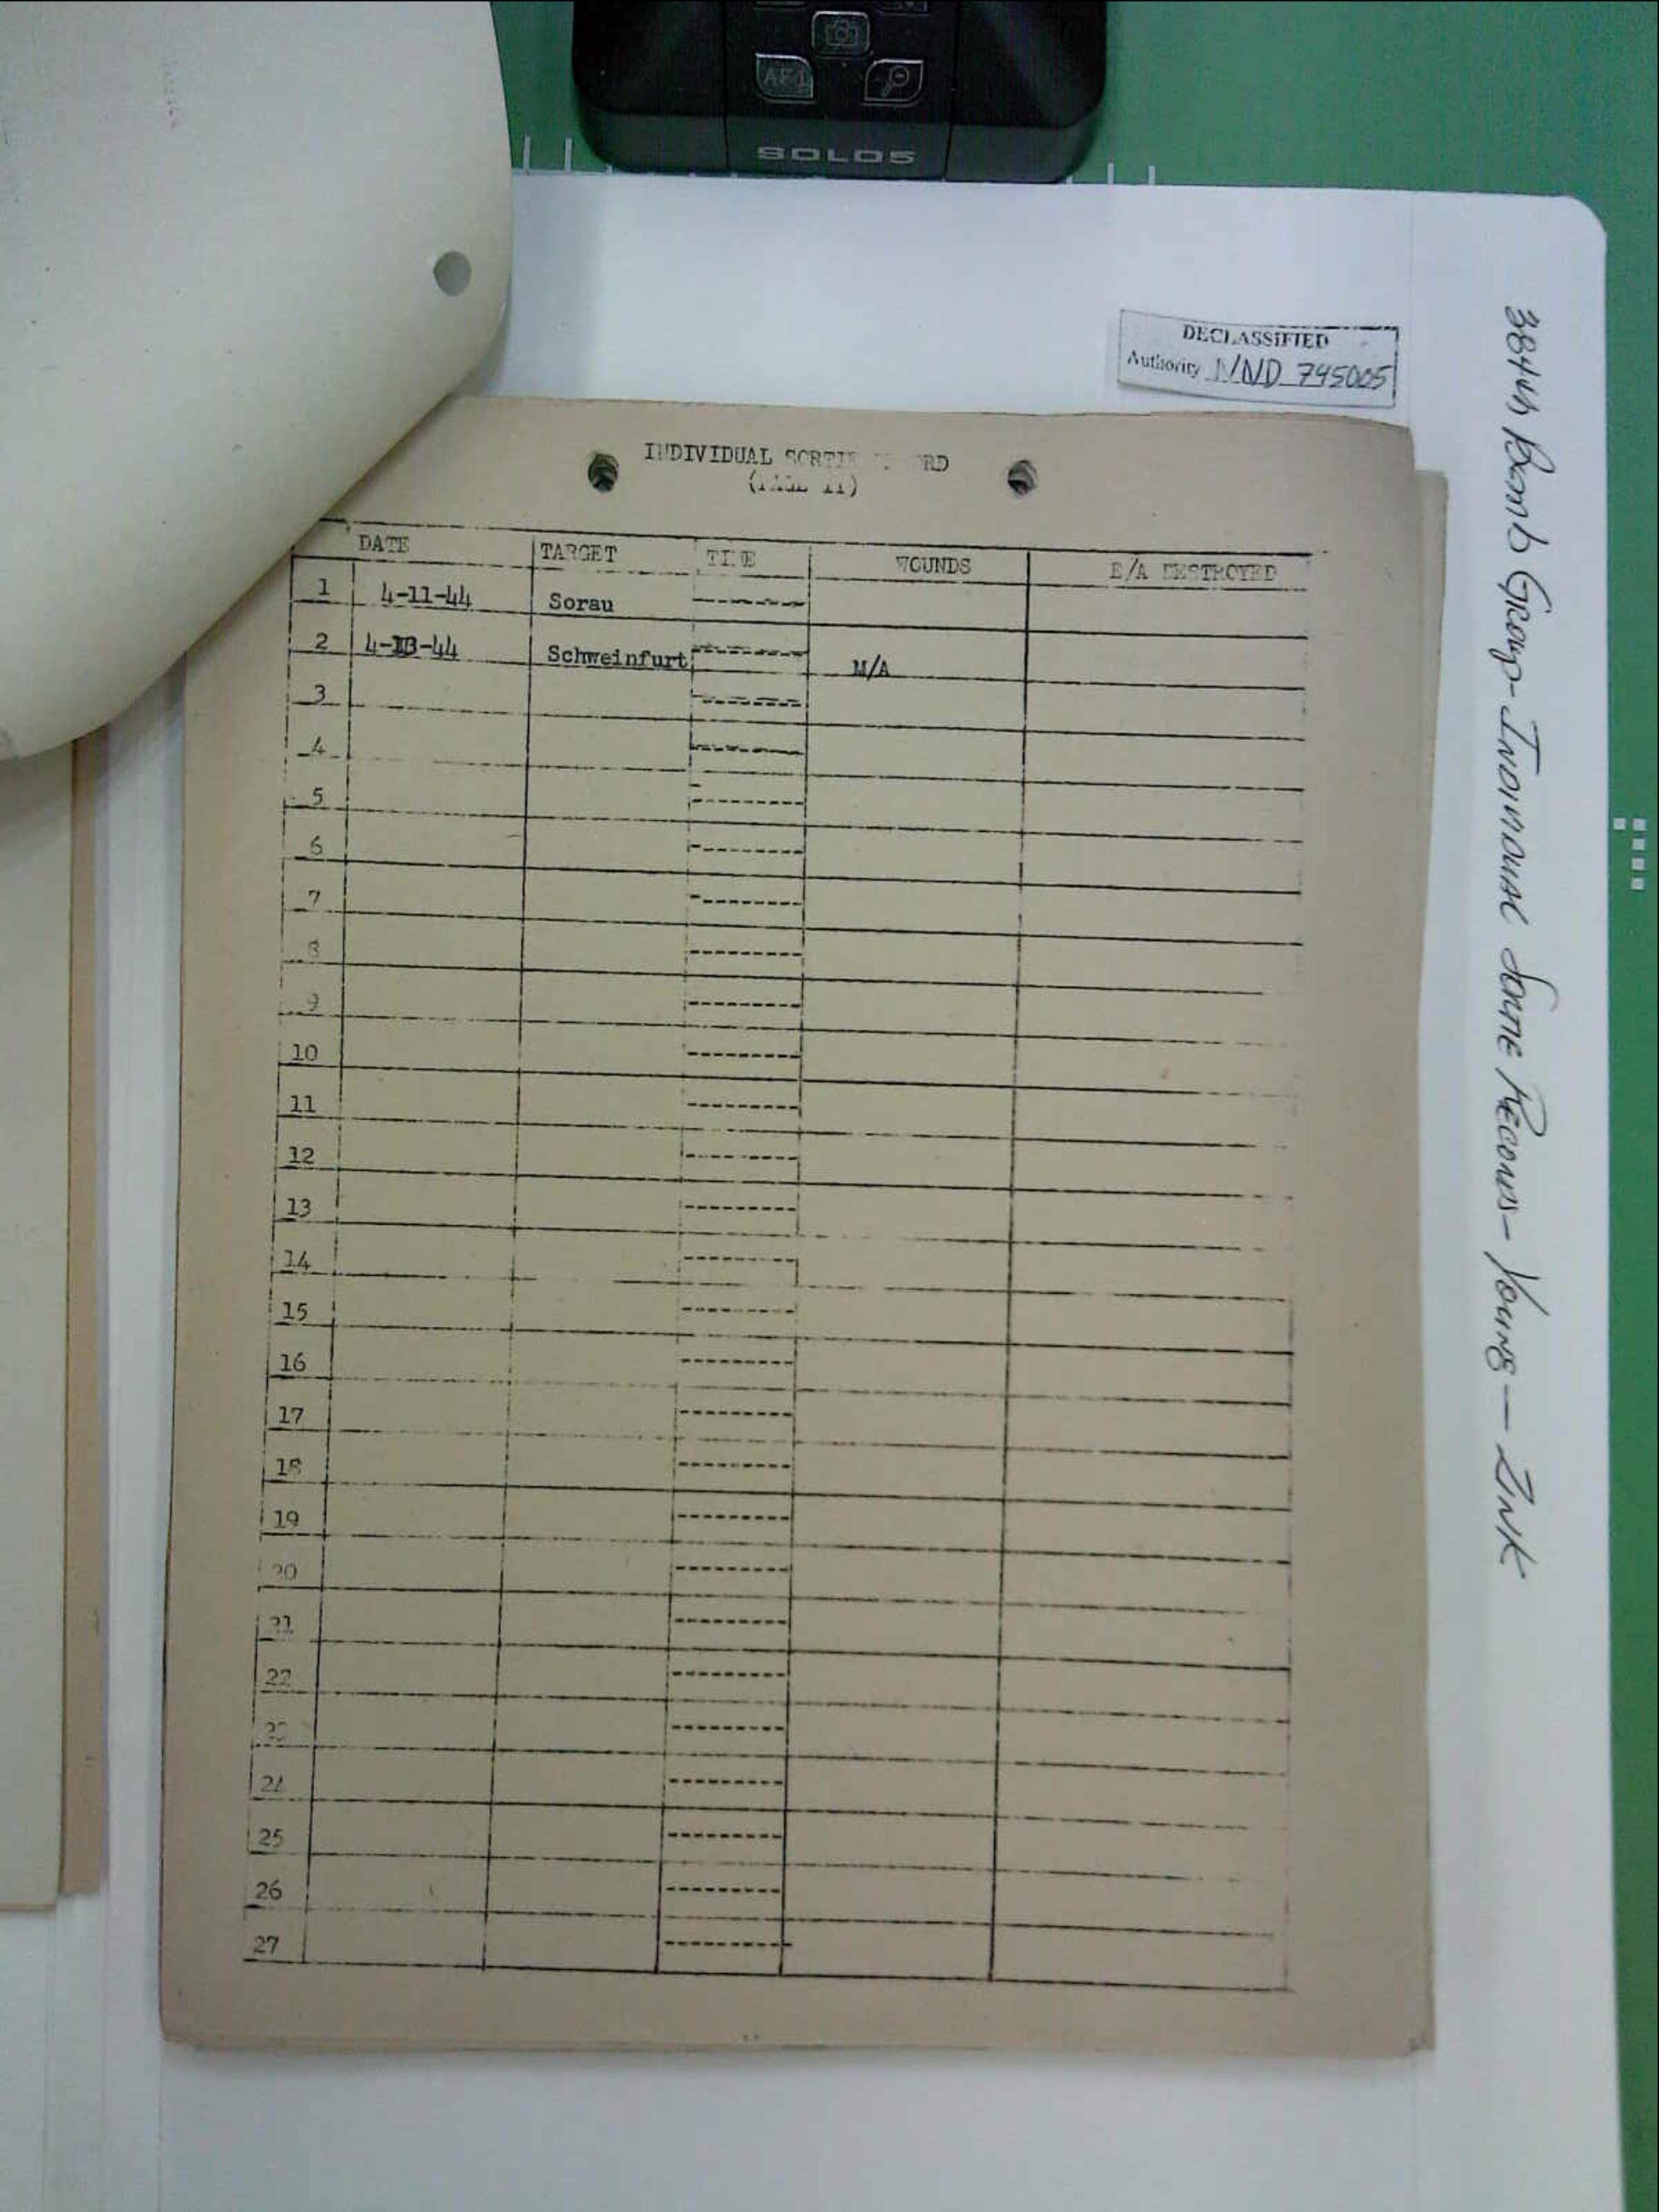 AF-L
SOLO5
DECLASSIFIED
Authority NND 745005
384th Bomb Group - Individual Sortie Records - Young — Zink
INDIVIDUAL SORTIE RD
(PAGE II)
DATE TARGET TIME WOUNDS E/A DESTROYED
1 4-11-44 Sorau
2 4-13-44 Schweinfurt M/A
3
4
5
6
7
8
9
10
11
12
13
14
15
16
17
18
19
20
21
22
23
24
25
26
27